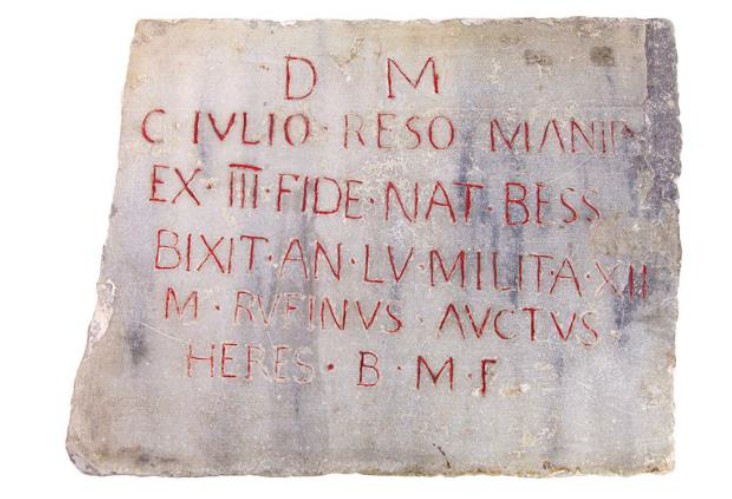 D M
C IVLIO · RESO MANIP
EX · III · FIDE · NAT · BESS
BIXIT · AN · LV · MILIT · A · XII
M · RVFINVS · AVCTVS
HERES · B · M · F